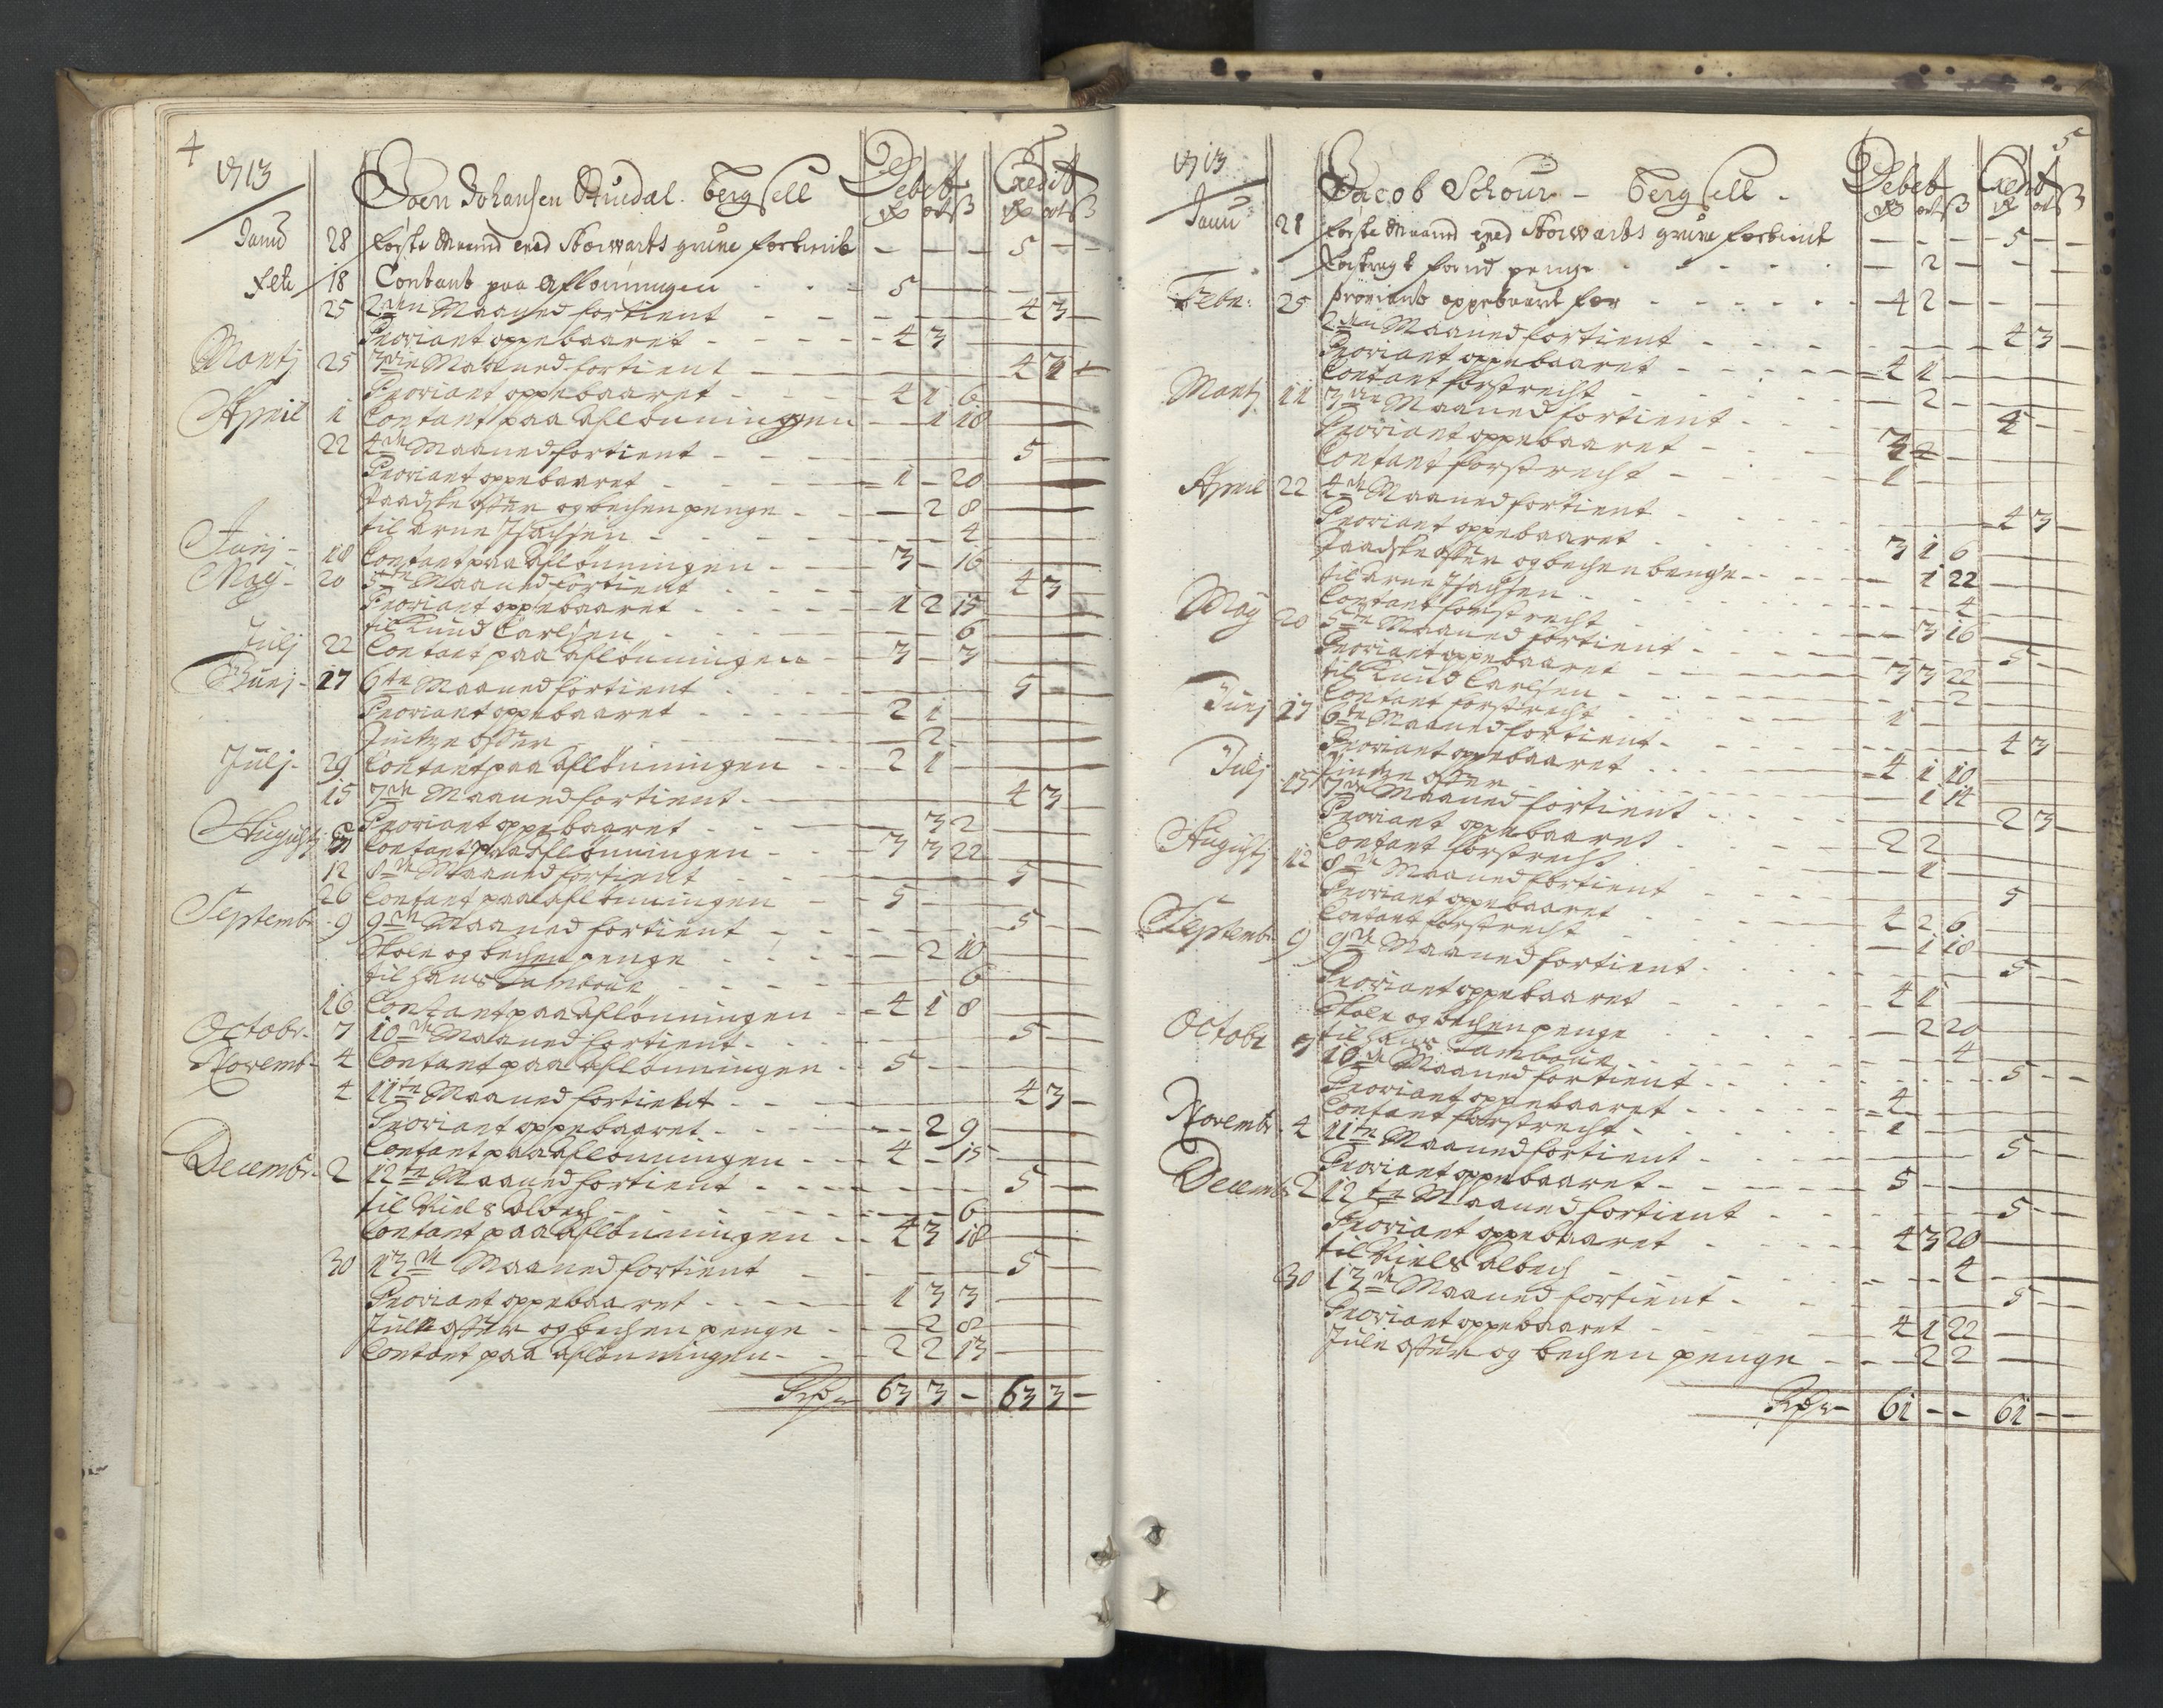 4
1713
Joen Johansen Stuedal. bergsell Debet Credit
rdr ort ß rdr ort ß
Janu 28 første Maaned ved Storwarts grube fortient - - - 5 - -
feb 18 Contant paa Aflønningen - - 5 - -
25 2den Maaned fortient - - - 4 3 -
Proviant oppebaaret - - - 4 3 -
Martj 25 3die Maaned fortient - - 4
Proviant oppebaaret - - 4 1 6
April 1 Contant paa Aflønningen - - 1 18
22 4de Maaned fortient - - 5 -
Proviant oppebaaret - - 1 - 20
Paadske offer og becken penge - - 2 8
til Arne Isachsen - - - 4
Junj - 10 Contant paa Aflønningen - - 3 - 16
Maj - 20 5te Maaned fortient - - 4 3
Proviant oppebaaret - - - 1 2 15
til Knud Carlsen - - - 6
Julj 22 Contant paa aflønningen - - 3 - 3
Junj - 17 6te Maaned fortient - - 5 -
Proviant oppebaaret - - - 2 1
Pintze offer - - 2
Julj - 29 Contant paa Aflønningen - - 2 1
15 7de Maaned fortient - - 4 3
Proviant oppebaaret - - 3 2
Augustj Contant paa Aflønningen - - 3 3 22
12 8de Maaned fortient - - 5 -
26 Contant paa Aflønningen - - 5 -
Septembr - 9 9de Maaned fortient - - - 5 -
Skole og becken penge - - - 2 10
til Hans Tambour - - - 6
16 Contant paa Aflønningen - - 4 1 8
Octobr - 7 10de Maaned fortient - - - 5 -
Novemb - 4 Contant paa Aflønningen - - 5 -
4 11te Maaned fortient - - - 4 3 -
Proviant oppebaaret - - - 2 9
Contant paa Aflønningen - - 4 - 15
Decembr - 2 12te Maaned fortient - - - 5 -
til Niels Albech - - - 6
Contant paa Aflønningen - - 4 3 18
30 13de Maaned fortient - - 5 -
Proviant oppebaaret - - - 1 3 3
Jule offer og becken penge - - 2 8
Contant paa Aflønningen - - 2 2 13
63 3 - 63 3 -
5
1713
Jacob Schour - bergsell - Debet Credit
rdr ort ß rdr ort ß
Janu 28 første Maaned ved Storwarts grube fortient - - - 5 -
forstragt forud penge - - - 2 -
Febr: 25 proviant oppebaaret for - - - 4 2 -
2den Maaned fortient - - - 4 3 -
Proviant oppebaaret - - - 4 1
Contant forstrecht - - - 2
Martj 11 3die Maaned fortient - -
Proviant oppebaaret - -
Contant forstrecht - - 1
April 22 4de Maaned fortient - - 4 3 -
Proviant oppebaaret - - 3 1 6
Paadske offer og becken benge - - 1 22
til Arne Isachsen - - - 4
Contant forstrecht - - 3 16
Maj 20 5te Maaned fortient - - 5 -
Proviant oppebaaret - - 3 3 22
til Knud Carlsen - - - 2
Contant forstrecht - - 1
Junj 17 6te Maaned fortient - - - 4 3
Proviant oppebaaret - - - 4 1 10
Pintze offer - - - 1 14
Julj 15 7de Maaned fortient - - - 2 3 -
Proviant oppebaaret - - - 2 2
Contant forstrecht - - 1
Augustj 12 8de Maaned fortient - - - 5 -
Proviant oppebaaret - - - 4 2 6
Contant forstrecht - - 1 18
Septembr 9 9de Maaned fortient - - - 5 -
Proviant oppebaaret - - - 4 1
Skole og becken penge - - - 2 20
til Hans Tambour - - - 4
Octobr 7 10de Maaned fortient - - - 5 - -
Proviant oppebaaret - - - 4
Contant forstrecht - - - 1
Novembr - 4 11te Maaned fortient - - - 5 -
Proviant oppebaaret - - - 5
Decembr 2 12te Maaned fortient - - - 5 -
Proviant oppebaaret - - - 4 3 20
til Niels Albech - - - 4
30 13de Maaned fortient - - - 5 -
Proviant oppebaaret - - - 4 1 22
Jule offer og becken penge - - - 2 2
61 - - 61 - -